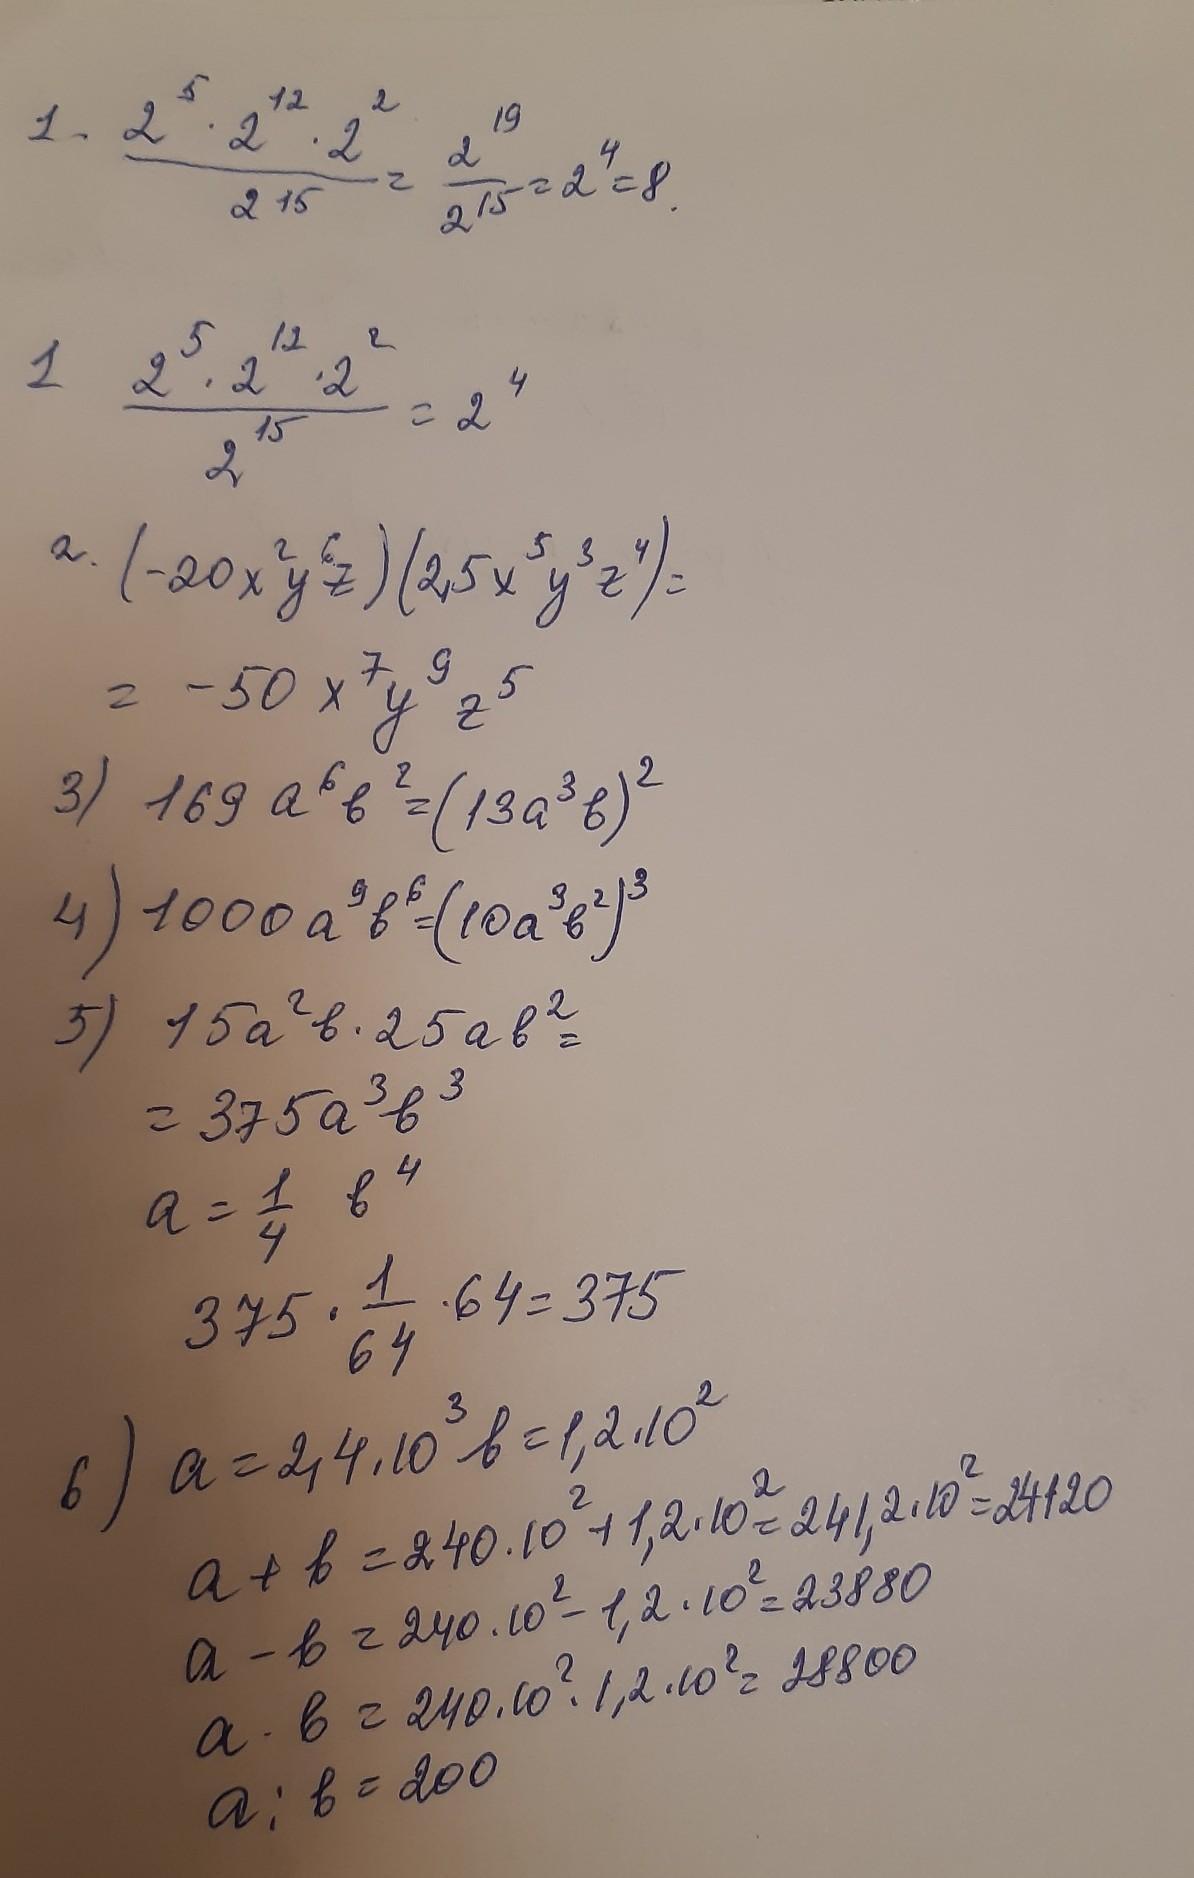 1. 2^5 · 2^12 · 2^2 / 2^15 = 2^19 / 2^15 = 2^4 = 8.
1 2^5 · 2^12 · 2^2 / 2^15 = 2^4
2. (-20x^2y^6z)(2,5x^5y^3z^4) =
= -50x^7y^9z^5
3) 169a^6в^2 = (13a^3в)^2
4) 1000a^9в^6 = (10a^3в^2)^3
5) 15a^2в · 25aв^2 =
= 375a^3в^3
a = 1/4 в^4
375 · 1/64 · 64 = 375
6) a = 2,4·10^3 в = 1,2·10^2
a + в = 240·10^2 + 1,2·10^2 = 241,2·10^2 = 24120
a - в = 240·10^2 - 1,2·10^2 = 23880
a · в = 240·10^2 · 1,2·10^2 = 28800
a : в = 200